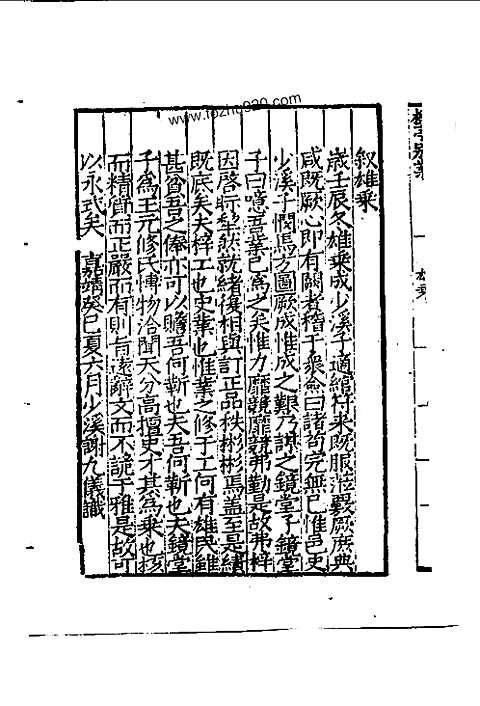 叙雄乘
歲壬辰冬雄乘成少溪子適綰符来既服涖嚴厥庶典
咸既厥心即有闕者稽于衆僉曰諸苟完無已惟邑史
少溪子憫焉方圖厥成惟成之艱乃諆之鏡堂子鏡堂
子曰噫吾業已為之矣惟力靡競靡競弗勤是故弗梓
因啓眎桀然就緒復相與訂正品秩彬彬焉盖至是績
既底矣夫梓工也史業也惟業之修于工何有雄民雖
甚貧吾之俸亦可以贍吾何靳也夫吾何靳也夫鏡堂
子為王元修氏博物洽聞天分高擅史才其為乘也核
而精質而正嚴而有則有遠辭文而不詭于雅是故可
以永式矣 嘉靖癸巳夏六月少溪謝九儀識
雄乘
www.fozhu920.com